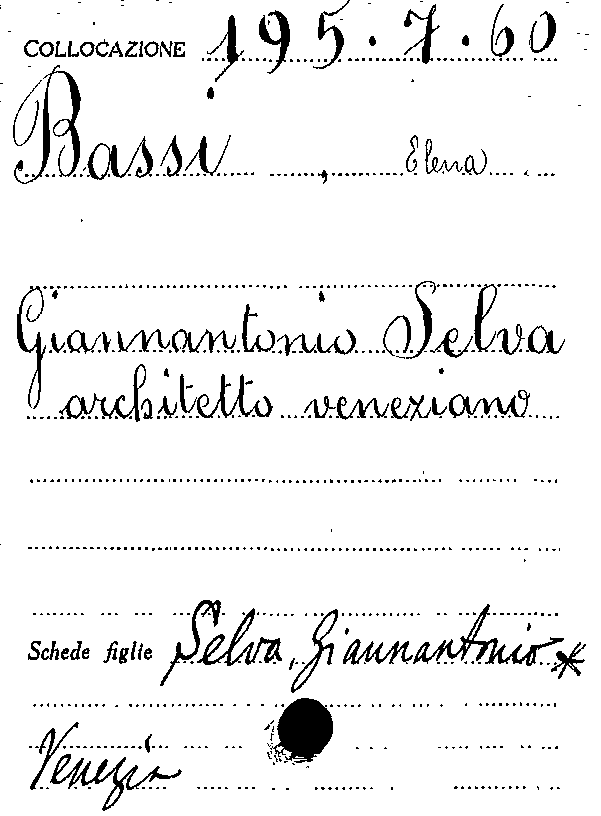 COLLOCAZIONE 195.7.60
Bassi, Elena
Giannantonio Selva
architetto veneziano
Schede figlie Selva, Giannantonio *
Venezia